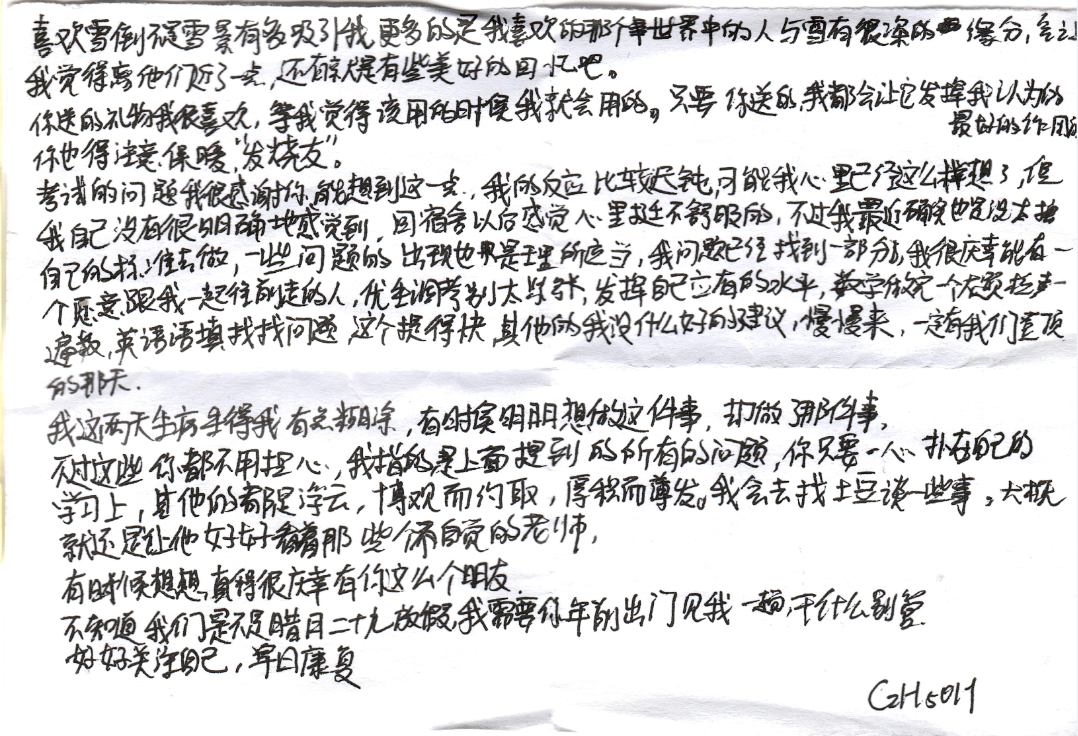 喜欢雪倒不是雪景有多吸引我,更多的是我喜欢的那个世界中的人与雪有很深的缘分,会让
我觉得离他们近了一点,还有就是有些美好的回忆吧。
你送的礼物我很喜欢,等我觉得该用的时候我就会用的。只要你送的,我都会让它发挥我认为的
最好的作用的
你也得注意保暖,“发烧友”。
考试的问题我很感谢你能想到这一点,我的反应比较迟钝,可能我心里已经这么样想了,但
我自己没有很明确地感觉到,回宿舍以后感觉心里挺不舒服的,不过我最近确实也是没太按
自己的标准去做,一些问题的出现也算是理所应当,我问题已经找到一部分,我很庆幸能有一
个愿意跟我一起往前走的人,优生调考别太紧张,发挥自己应有的水平,数学做完一个大题抬
遍数,英语语填找找问题,这个提得快,其他的我没什么好的建议,慢慢来,一定有我们登顶
的那天.
我这两天生病生得我有点糊涂,有时候明明想做这件事,却做了那件事,
不过这些你都不用担心,我指的是上面提到的所有的问题,你只要一心扑在自己的
学习上,其他的都是浮云,博观而约取,厚积而薄发。我会去找土豆谈一些事。大概
就还是让他好好看着那些不自觉的老师,
有时候想想,真得很庆幸有你这么个朋友
不知道我们是不是腊月二十九放假,我需要你年前出门见我一趟,干什么别管
好好关注自己,早日康复
C2H5OH